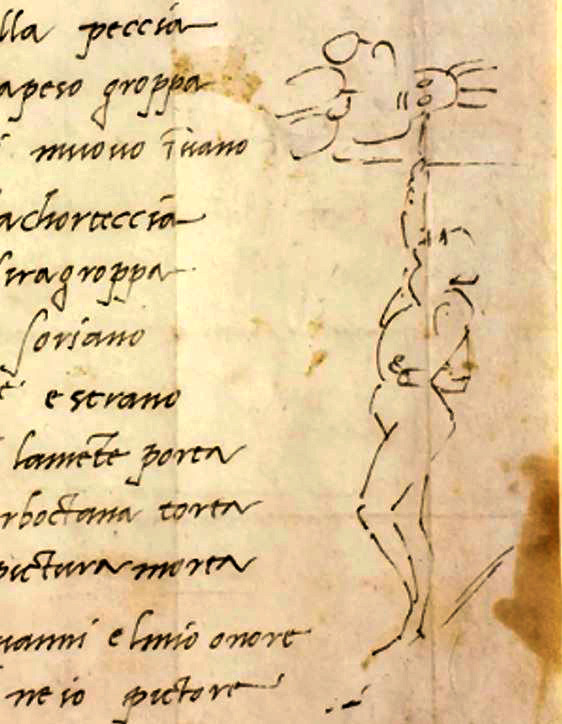 lla peccia
apeso groppa
i muouo īuano
achorteccia
siragroppa
soriano
e strano
lamēte porta
rboctana torta
pictura morta
uanni elmio onore
ne io pictore